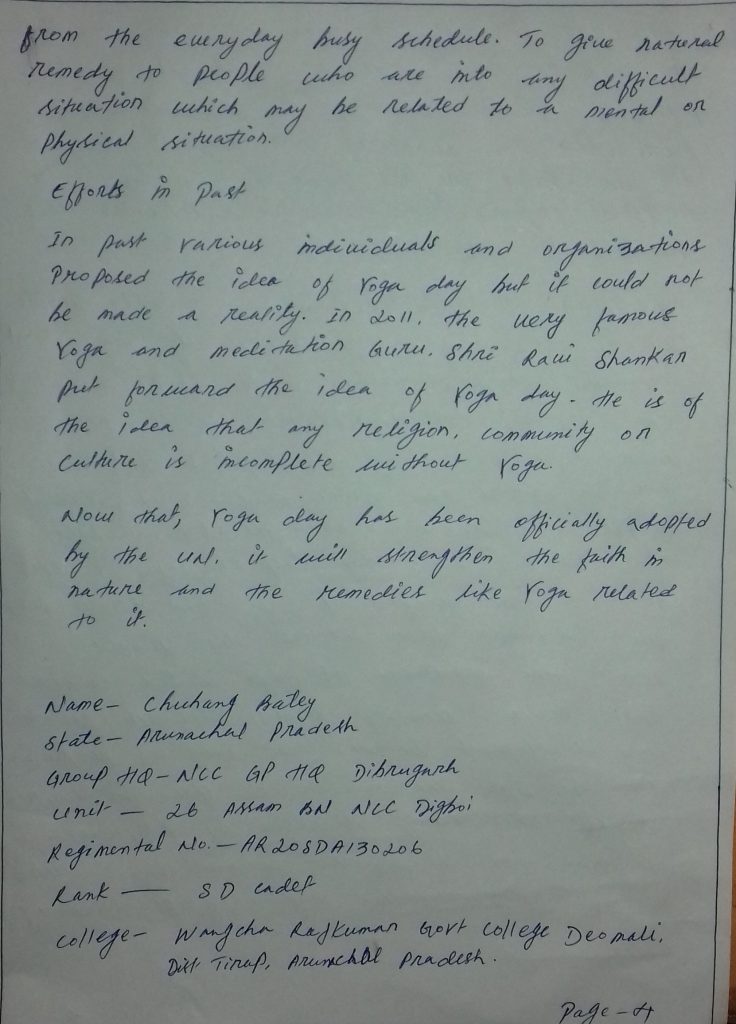 from the everyday busy schedule. To give natural
remedy to people who are into any difficult
situation which may be related to a mental or
physical situation.
Efforts in Past
In past various individuals and organizations
Proposed the idea of Yoga day but it could not
be made a reality. In 2011, the very famous
Yoga and meditation Guru. Shri Ravi Shankar
put forward the idea of Yoga day. He is of
the idea that any religion, community or
culture is incomplete without Yoga.
Now that, Yoga day has been officially adopted
by the UN. it will strengthen the faith in
nature and the remedies like Yoga related
to it.
Name- Chuhang Batey
State- Arunachal Pradesh
Group HQ- NCC GP HQ Dibrugarh
Unit - 26 Assam BN NCC Digboi
Regimental No. - AR20SDA130206
Rank - SD cadet
College- Wangcha Rajkumar Govt College Deomali,
Dist Tirap, Arunachal Pradesh.
Page-4